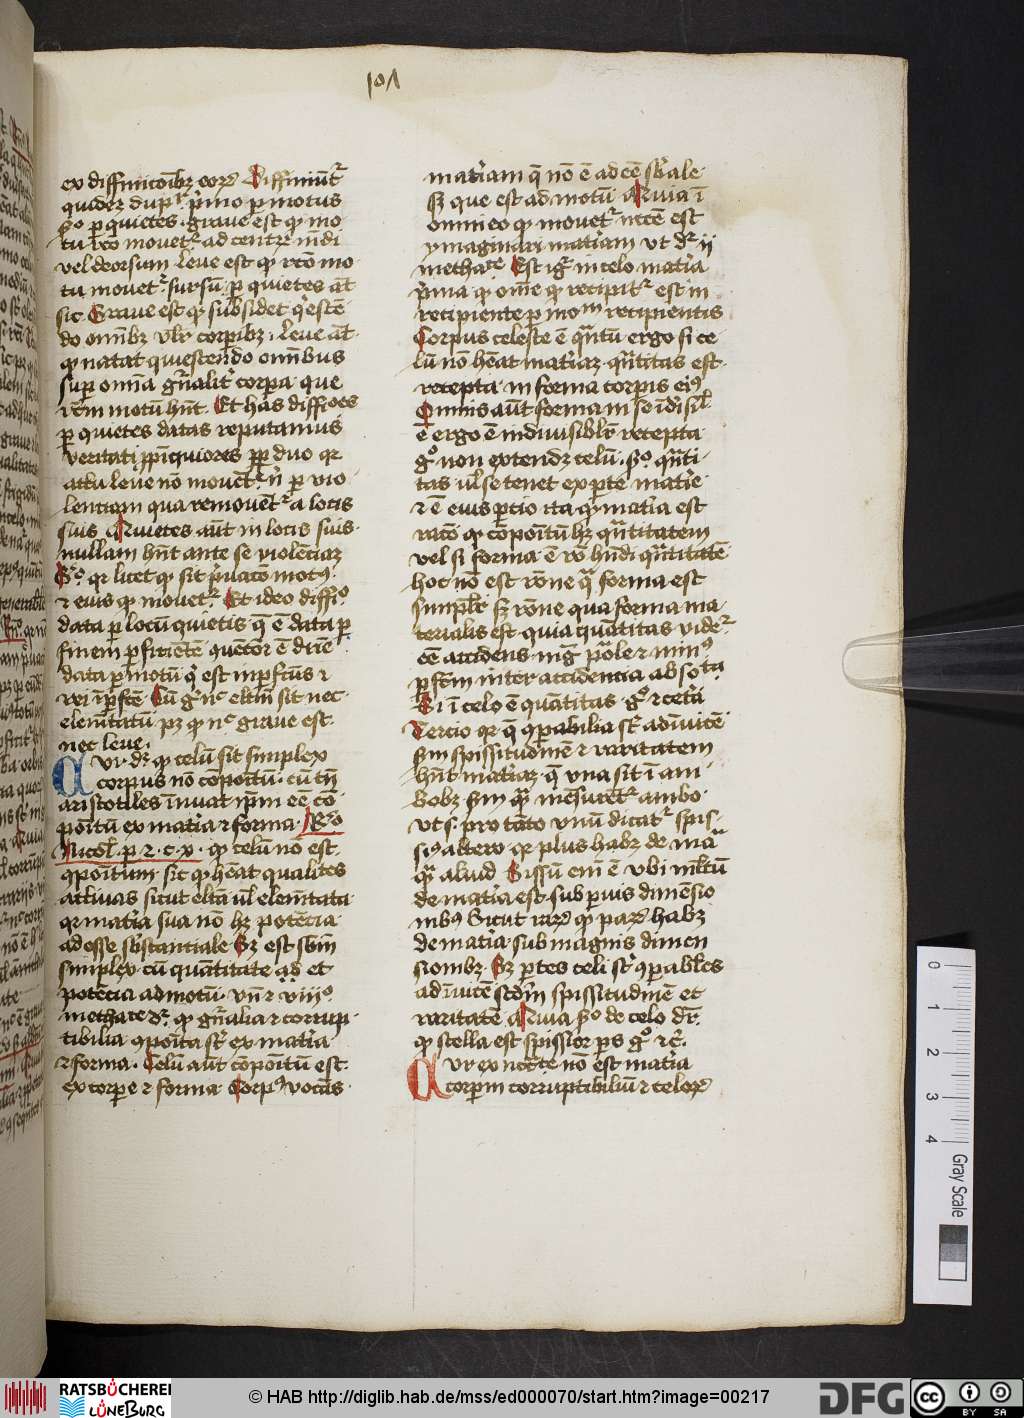 101
ex diffinicoībꝫ eoꝝ Diffiniūt᷑
quidē dupͬ pͥmo ꝑ motus
ꝑ quietes · graue est qꝫ mo
tu rcō mouet᷑ ad centrū mūdi
vel deorsum leue est qꝫ rcō mo
tu mouet᷑ sursū ꝑ quietes aūt
sic Graue est qꝫ subsidet qͥescē
do omībꝫ vlr corpībꝫ · leue aūt
qꝫ natat quiescendo omībus
suꝑ omīa gn̄alit᷑ corpa que
rcm motū hn̄t · Et has diffiōes
ꝑ quietes datas reputamus
veritati ꝓpīquiores ꝓpͭ duo qꝛ
actu leue nō mouet᷑ nͥ ꝑ vio
lenciam qua remouent᷑ a locis
suis Quietes aūt in locis suis
nullam hn̄t ante se violēciaꝫ
qꝛ licet qꝫ sit pͥuacō motꝰ
⁊ eius qꝫ mouet᷑ Et ideo diffiͦ
data ꝑ locū quietis que ē data ꝑ
finem ꝑficiētē
data ꝑ motū qͥ est inꝑfctus ⁊
rei īꝑfcte Cū gͦ nͨ eltm̄ sit nec
elem̄tatū pꝫ qꝫ nͨ graue est
nec leue ·
Vi· dꝫ qꝫ celū sit simplex
corpus nō cōpoītū · cū tn̄
aristotiles īnuat ip̄m eē cō
poītū ex matīa ⁊ forma · Rͦ
Nicol ꝑ 2 · c · x · qꝫ celū nō est
ꝯpoītum · sic qꝫ hēat qualites
actiuas sicut eltā ul elem̄tata
qꝛ matīa sua nō hꝫ potēcia
ad esse sbstanciale Sꝫ est sbm̄
simplex cū quātitate ad et
potēcia ad motū · vn̄ ⁊ viiiͦ
methace dꝛ · qꝫ gn̄alia ⁊ corrup
tibilia ꝯpoīta st᷑ ex matīa
⁊ forma · Celū aūt cōpoītū est
ex corpe ⁊ forma Corpꝰ vocās
matīam q̄ nō ē ad eē sbale
sꝫ que est ad motū Quia ī
omni eo qꝫ mouet᷑ necē est
ymaginari matīam vt dꝛ ii
methace Est igͬ in celo matīa
pͥma qꝫ om̄e qꝫ recipit᷑ est in
recipiente ꝑ moͫ recipientis
Corpus celeste ē qͣntū ergo si ce
lū nō hēat matīaꝫ qͣntitas est
recepta in forma corpis eiꝰ
Omnis aūt forma in se īdisil
ē ergo ē indiuisiblr recepta
gͦ non extendꝫ celū · qͣnti
tas ul se tenet ex pͣte matīe
⁊ ē eius ꝓcio ita qꝫ matīa est
racō qꝫ cōpoītū hꝫ qͣntitatem
vel si forma ē rō hn̄di qͣntitatē
hoc nō est rōne qͣ forma est
simplr sꝫ rōne qua forma ma
terialis est · quia quātitas videt᷑
eē accidens
ꝑfctm̄ inter accidencia absoluta
Si ī celo ē quātitas gͦ ⁊ cetā
Tercio qꝛ q̄ ꝯpabilia st᷑ adīuicē
scdm spissitudinē ⁊ raritatem
hn̄t matīaꝫ · q̄ vna sit ī am
bobꝫ scdm qͣ mēsurēt᷑ ambo
vt s · pro tāto vnū dicat᷑ spis
siꝰ altero qꝛ plus habꝫ de mͣ
qͣ aliud Spissū em̄ ē vbi mltū
de matīa est sub ꝑuis dimēsio
nibꝰ Sicut rarū qꝫ parū habꝫ
de matīa sub magnis dimen
sionibꝫ · Sꝫ ꝑtes celi st᷑ ꝯpabiles
adīuicē scdm spissitudinē et
raritatē Quia de celo dꝛ
qꝫ stella est spissior ꝑs gͦ ⁊c̄
Vr ex necte nō est matīa
corpm corruptibiliū ⁊ celoꝝ
0 1 2 3 4
Gray Scale
RATSBÜCHEREI
LÜNEBURG
© HAB http://diglib.hab.de/mss/ed000070/start.htm?image=00217
DFG
cc BY SA